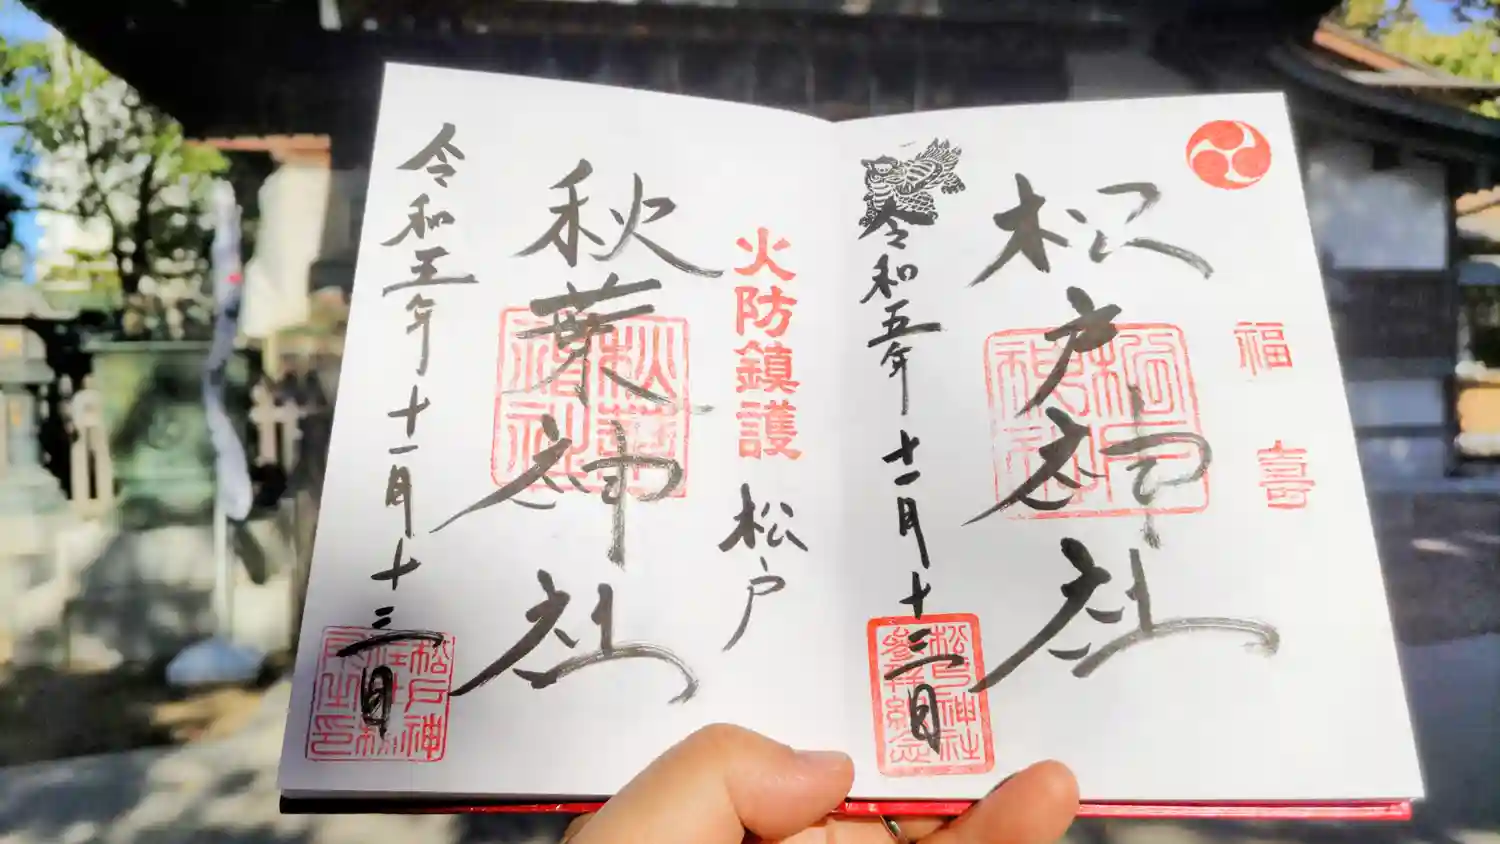 福
喜
松戸神社
松戸神社
令和五年十一月十三日
松戸神社
参拝紀念
火防鎮護
松戸
秋葉神社
令和五年十一月十三日